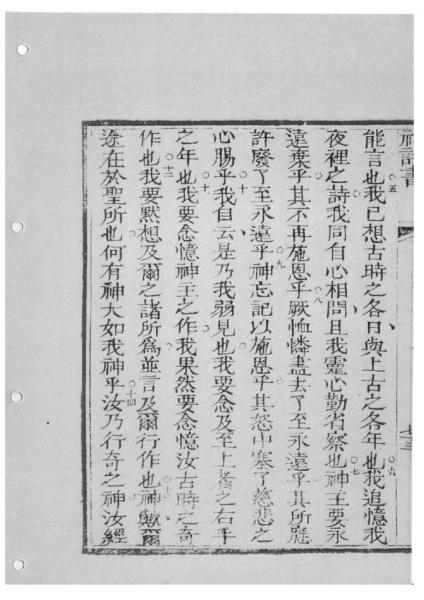 神詩書
七三
能言也○五我已想古時之各日與上古之各年也○六我追憶我
夜裡之詩我同自心相問且我靈心勤省察也○七神主要永
遠棄乎其不再施恩乎○八厥恤憐盡去了至永遠乎其所應
許廢了至永遠乎○九神忘記以施恩乎其怒中塞了慈悲之
心賜乎○十我自云是乃我弱見也我要念及至上者之右手
之年也○十一我要念憶神主之作我果然要念憶汝古時之奇
作也○十二我要默想及爾之諸所為並言及爾行作也○十三神歟爾
途在於聖所也何有神大如我神乎○十四汝乃行奇之神汝經